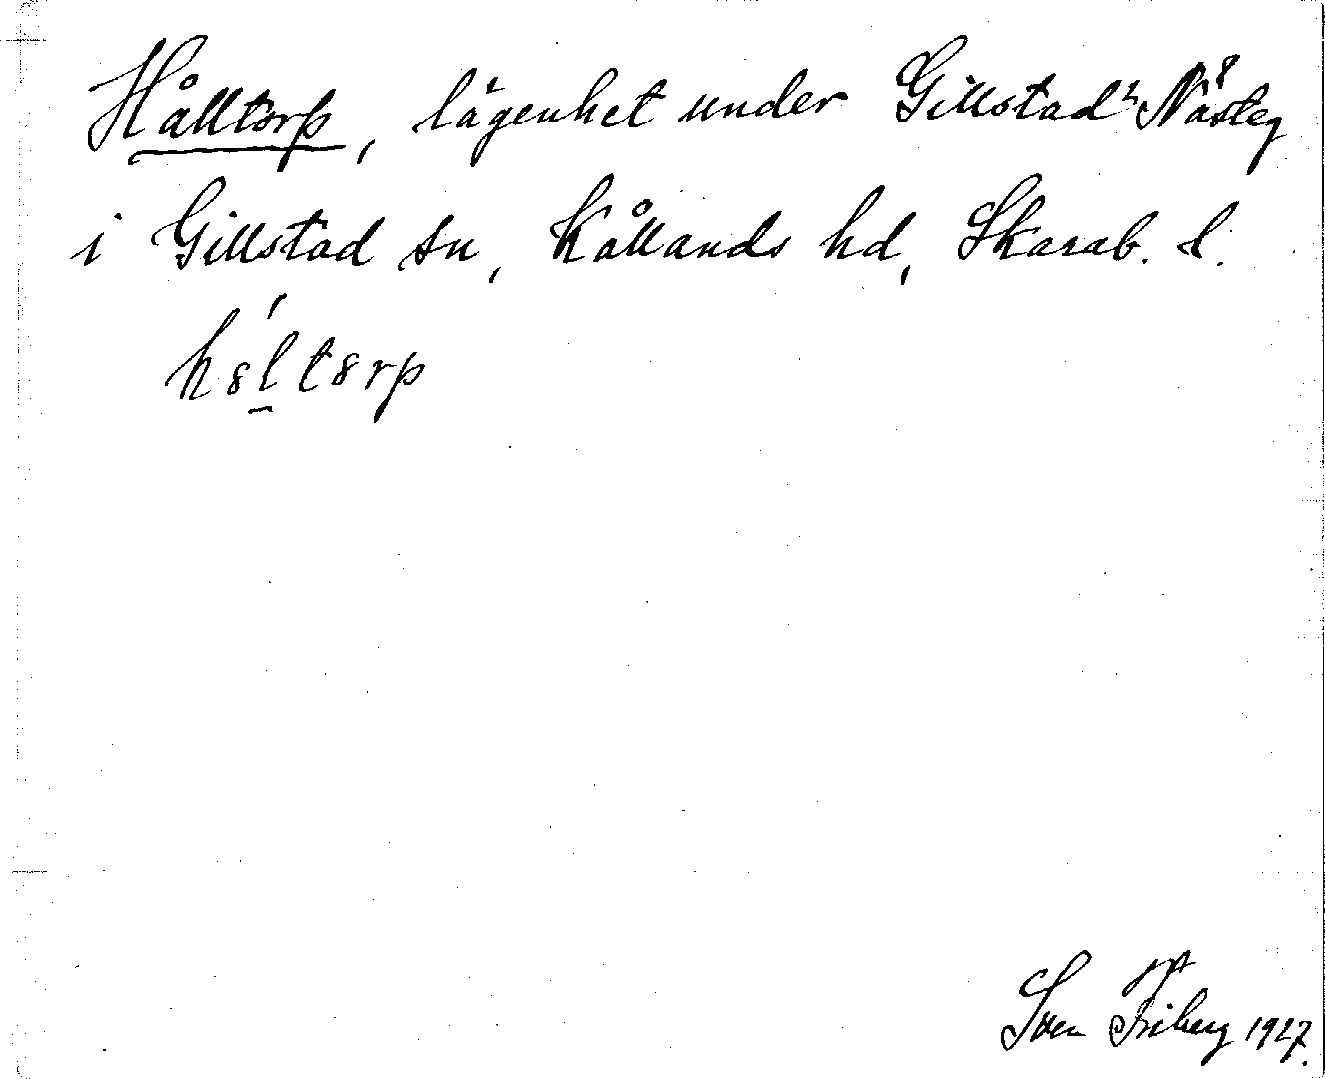 Hålltorp, lägenhet under Gillstads Nästeg
i Gillstad sn, Kållands hd, Skarab. l.
hɞltɞrp
Sven Friberg 1927.